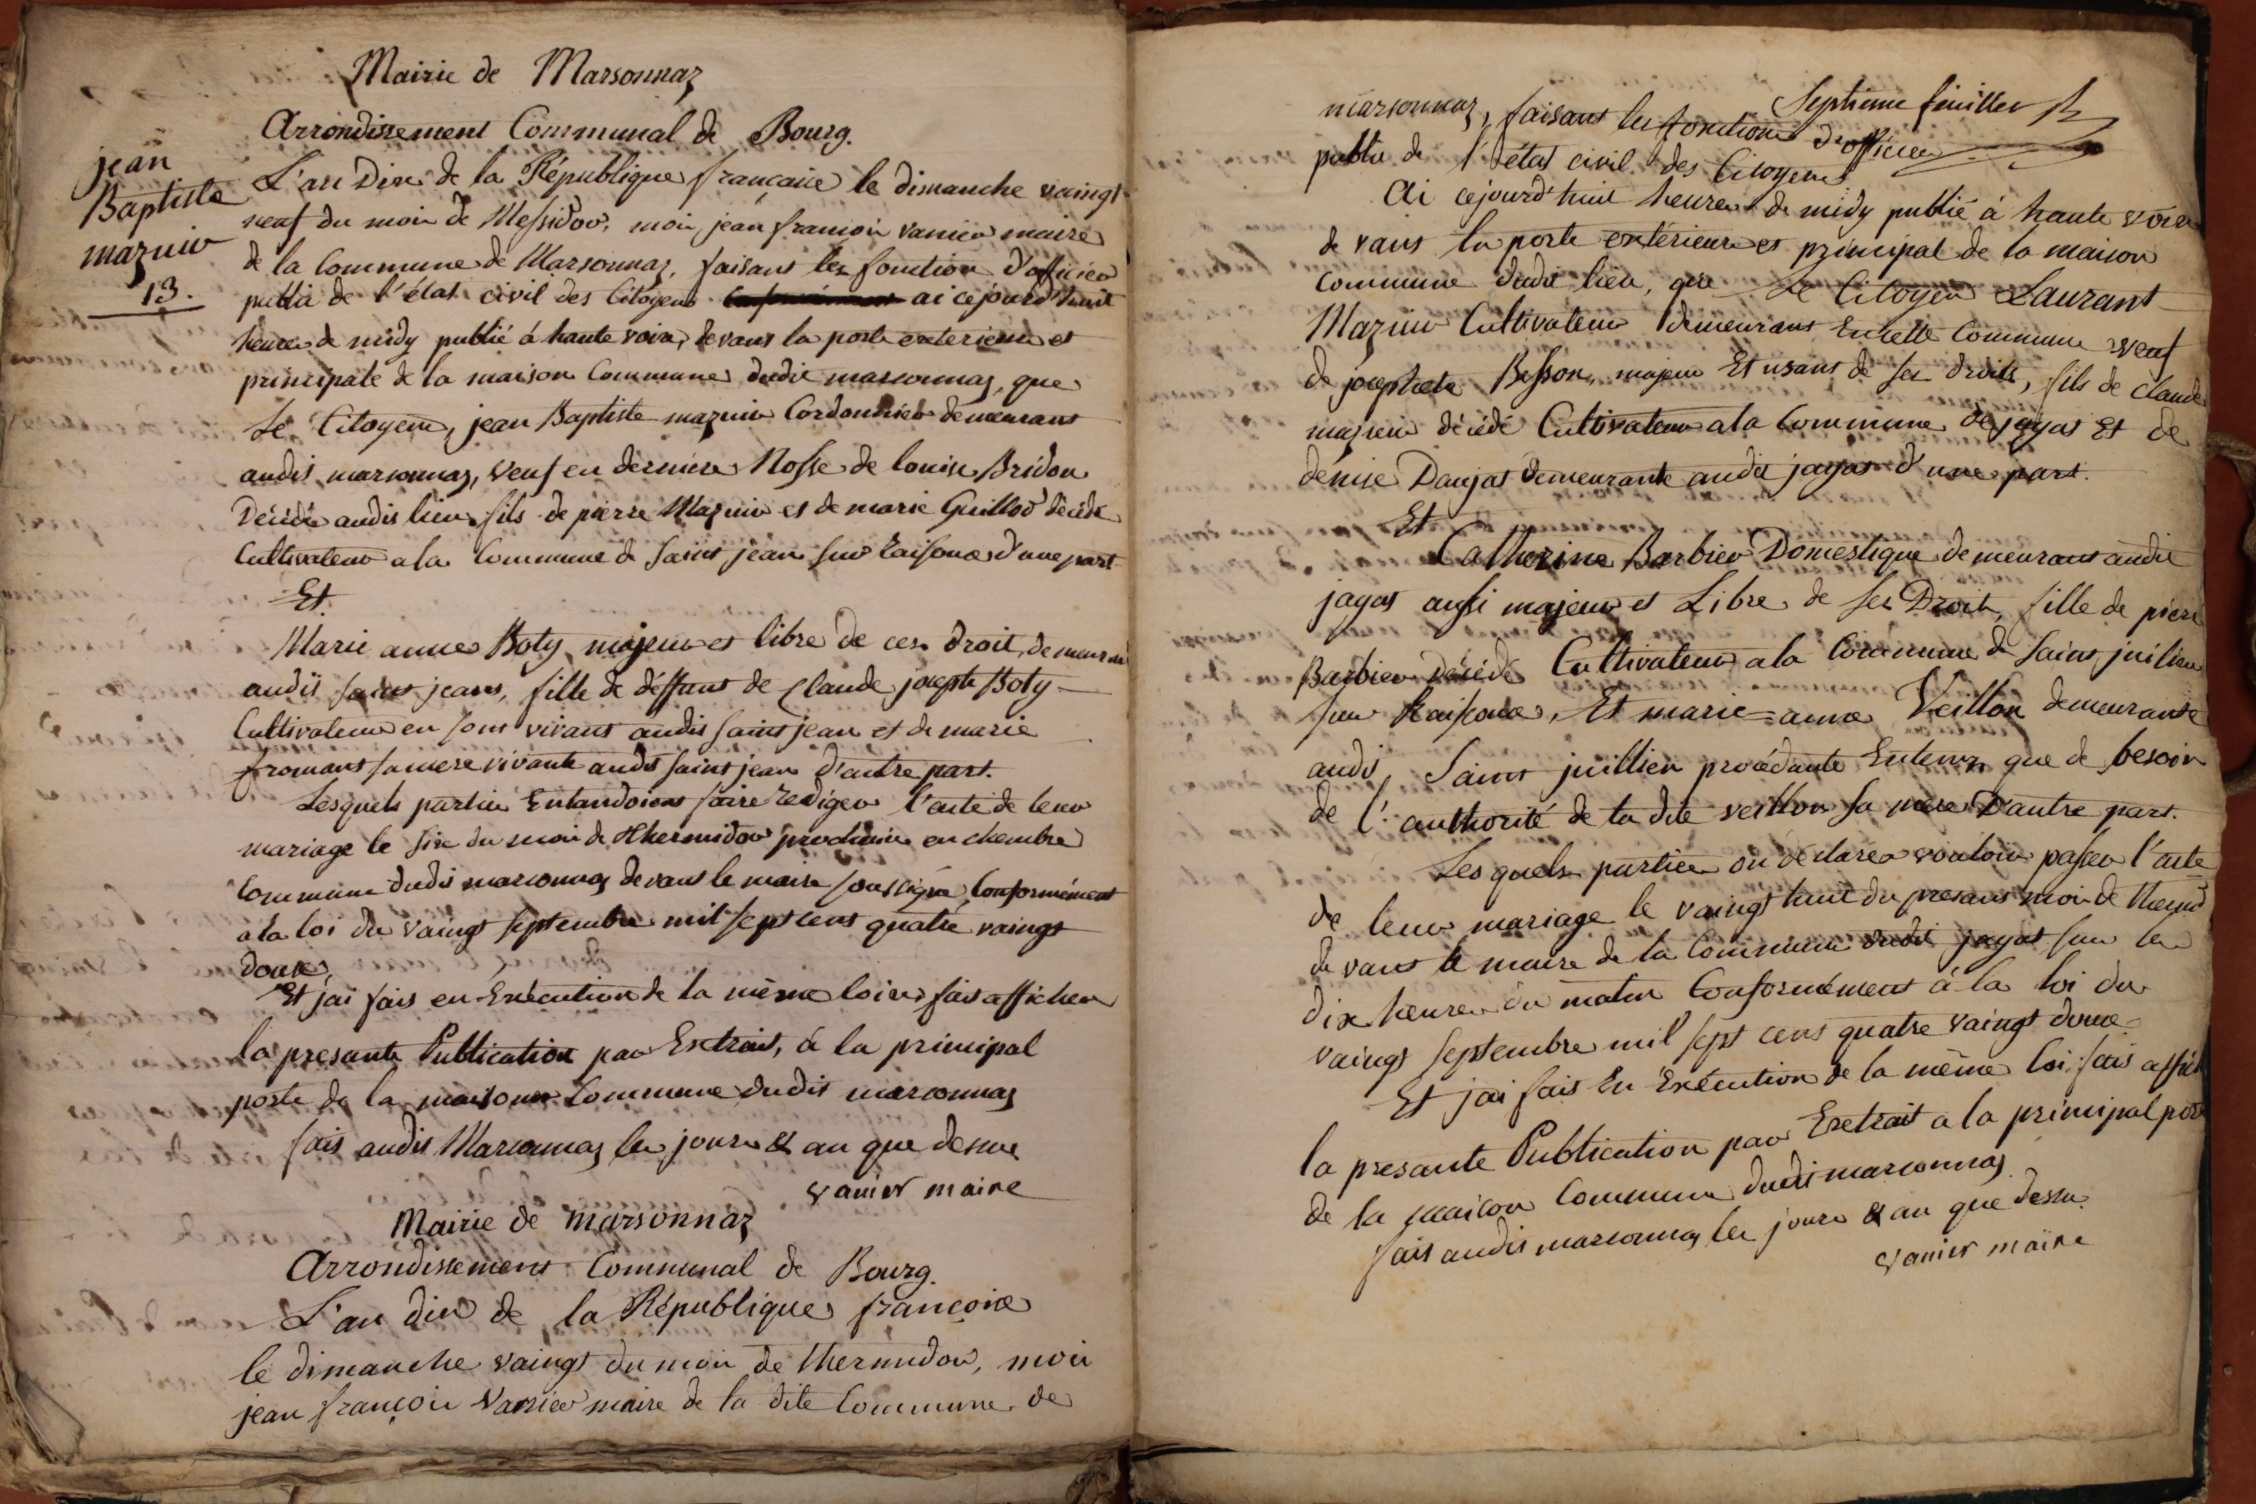 Mairie de Marsonnaz
Arrondissement Communal de Bourg.
jean
Baptiste
mazuir
13.
L'an Dix de la République française le dimanche vaingt
neuf du moi de Messidor, moi jean françoi vanier maire
de la Commune de Marsonnaz, faisant les fonction d'officier
publia de l'état civil des Citoyens ai cejourd'huit
heure de midy publié á haute voix, devant la porte exterieure et
principale de la maison Commune dudit marsonnaz, que
Le Citoyen, jean Baptiste mazuir Cordonnier demeurant
audit marsonnaz, veuf en derniere Nosse de louise Bridon
Décédé audit lieu, fils de pierre Mazuir et de marie Guillod décédé
Cultivateur a la Commune de Saint jean sur Raisouse d'une part
Et
Marie anne Boty majeur et libre de ces droit, demeurant
audit saint jean, fille de déffunt de Claude joseph Boty
Cultivateur en son vivant audit saint jean et de marie
fromant sa mere vivante audit saint jean d'autre part.
Lesquels partie Entandoient faire rediger l'acte de leur
mariage le six du moi de thermidor prochain en chambre
Commune dudit marsonnaz devant le maire soussigné, Conformément
a la loi du vaingt septembre mil sept cent quatre vaingt
douze,
Et j'ai fais en Exécution de la même loi fais afficher
la presante Publication par Extrait, á la principal
porte de la maison Commune dudit marsonnaz
fais audit Marsonnaz les jour & an que dessus
vanier maire
Mairie de marsonnaz
Arrondissement Communal de Bourg.
L'an dix de la République françoise
le dimanche vaingt du moi de thermidor, moi
jean françoi Vanier maire de la dite Commune de
Septieme feuillet
marsonnaz, faisant les fonctions d'officier
public de l'état civil des Citoyens
Ai cejourd'huit heure de midy publié á haute voix
devant la porte extérieure et principal de la maison
Commune dudit lieu, que Le Citoyen Laurant
Mazuir Cultivateur demeurant En cette Commune veuf
de josephete Besson, majeur Et usant de ses droits, fils de claude
mazuir décédé Cultivateur a la Commune de jayat Et de
denise Danjat demeurante audit jayat d'une part.
Et
Catherine Barbier Domestique demeurant audit
jayat aussi majeur et Libre de ses Droit, fille de piere
Barbier décédé Cultivateur a la Commune de saint juilien
sur Raisouse, Et marie=anne Veillon demeurante
audit, Saint juillien procédante Entems que de besoin
de l'authorité de la dite veillon sa mere D'autre part.
Lesquels partie on déclarer vouloir passer l'acte
de leur mariage le vaingt huit du presant moi de thermid
devant le maire de la Commune dudit jayat sur les
dix heure du matin Conformément á la loi du
vaingt septembre mil sept cent quatre vaingt douze.
Et jai fais En Exécution de la même loi, fais affich
la presante Publication par Extrait a la principal porte
de la maison Commune dudit marsonnaz
fais audit marsonnaz les jour & an que dessu.
vanier maire